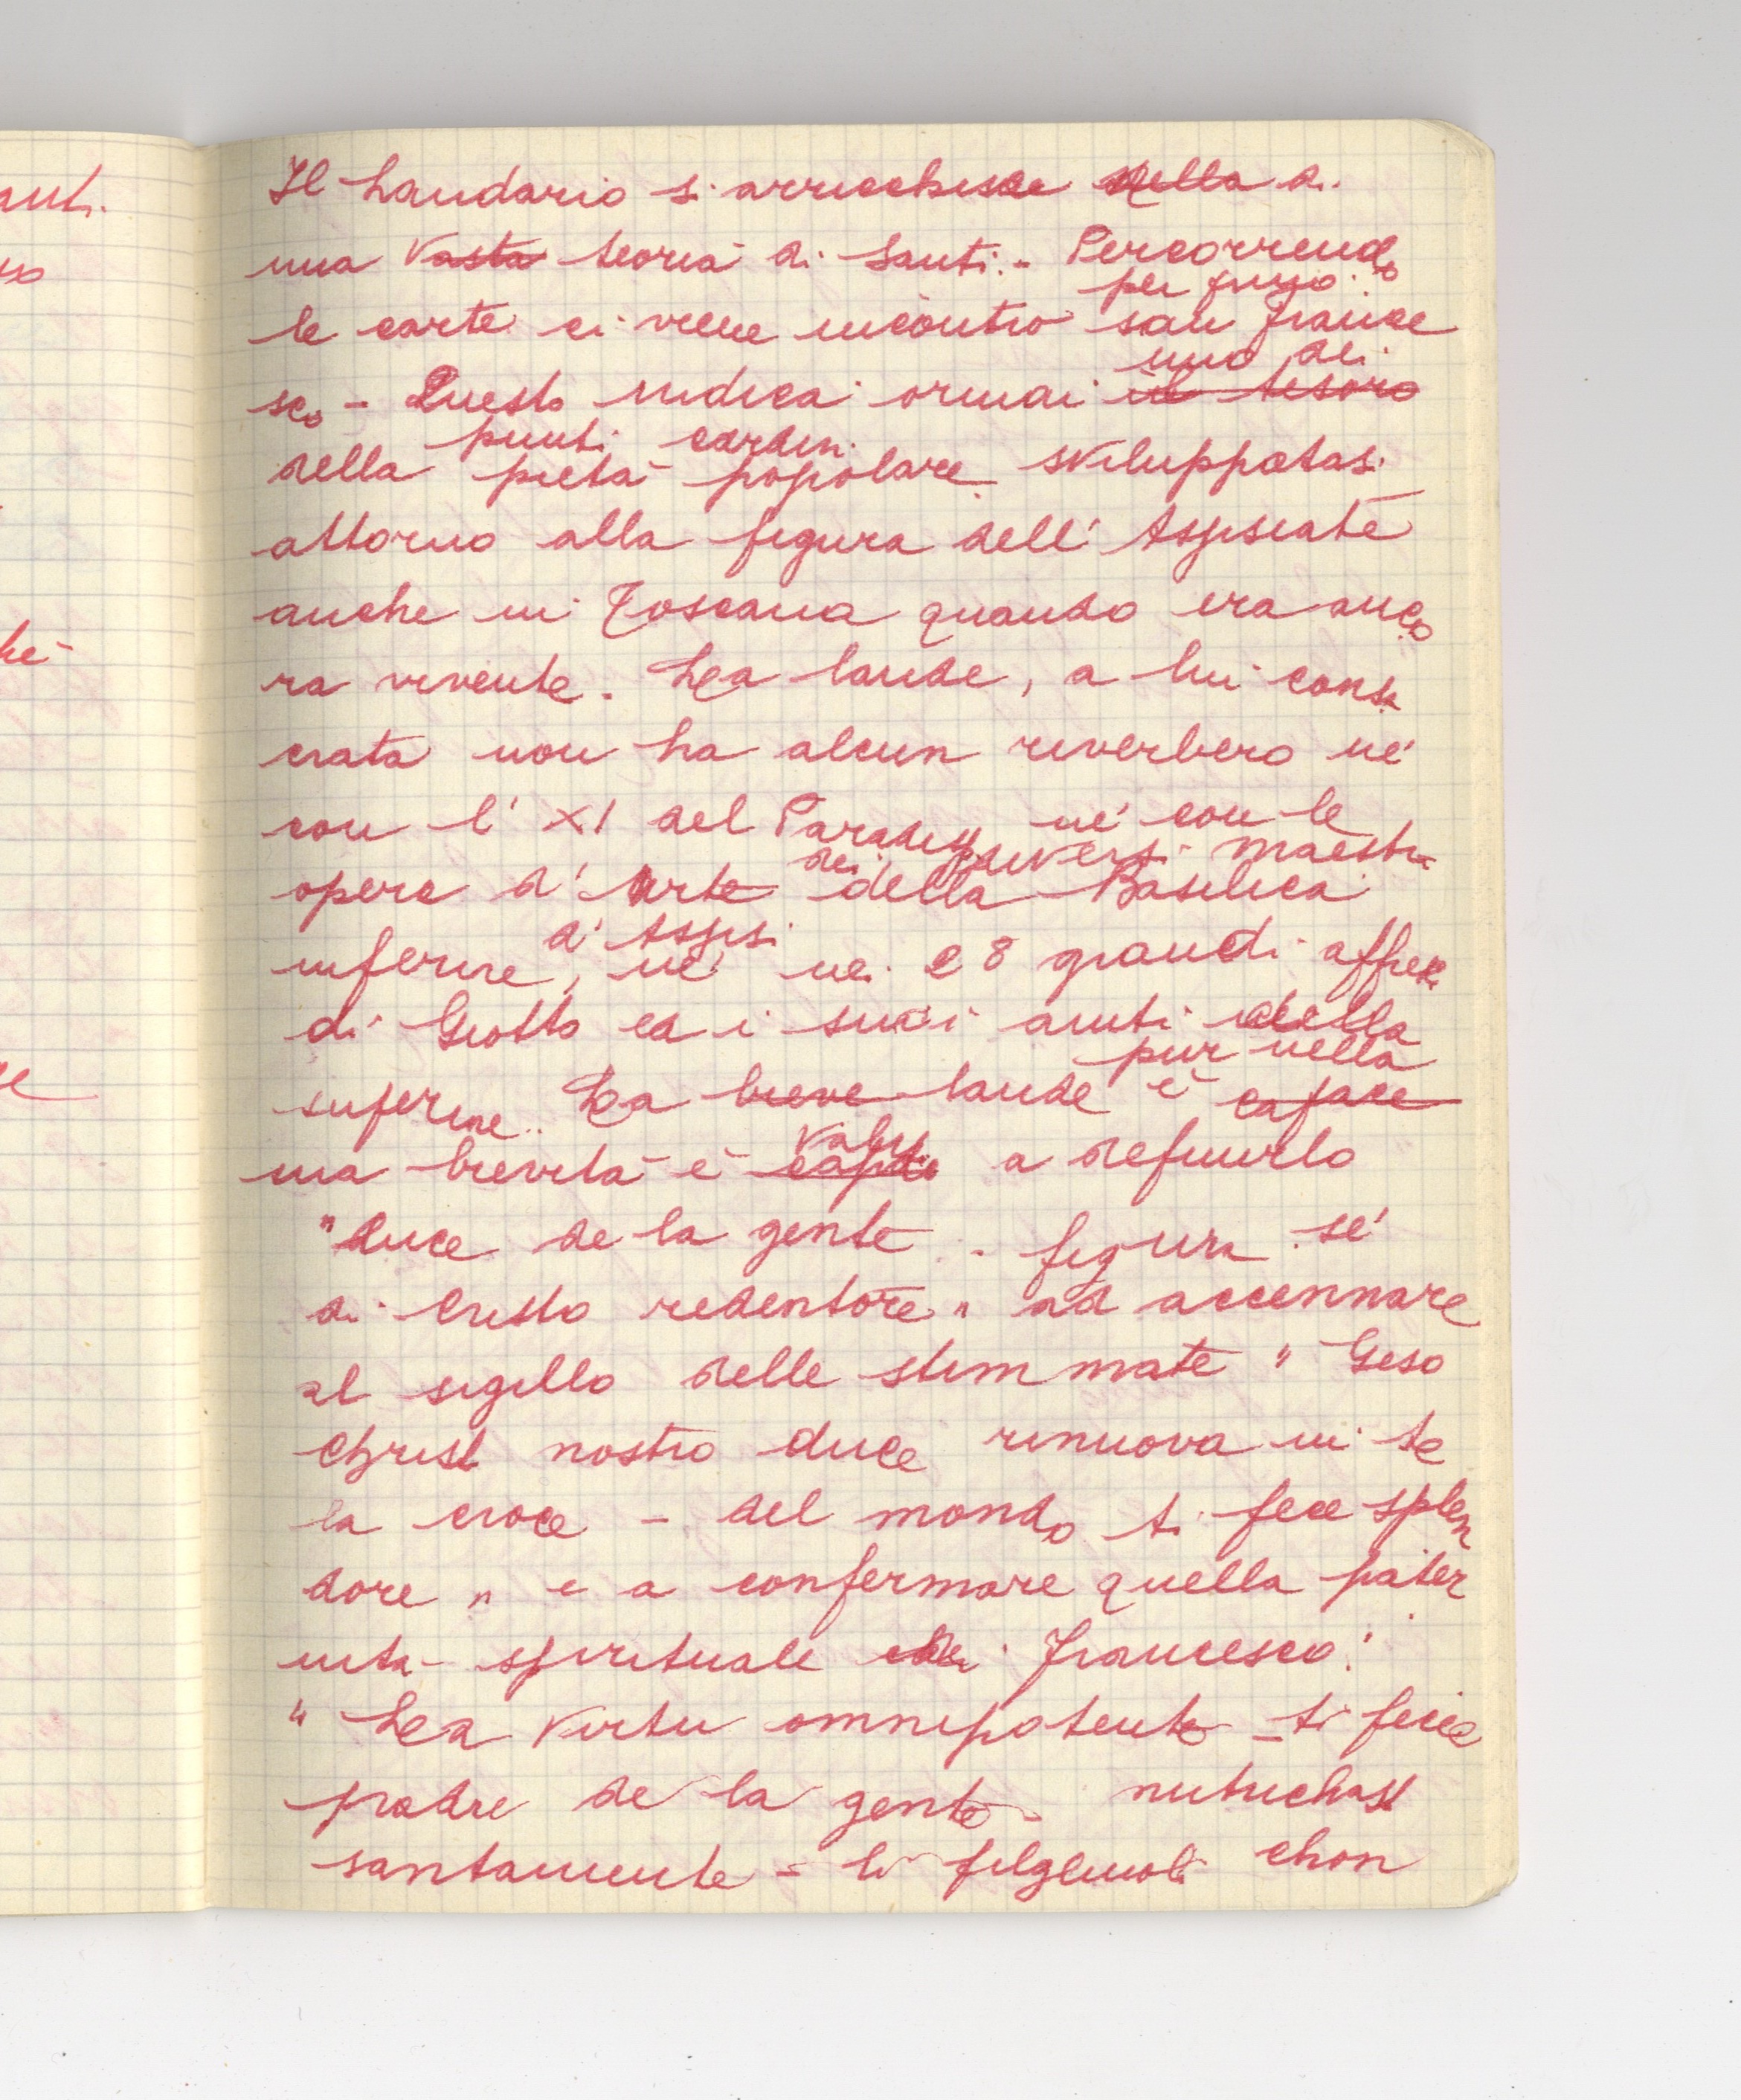 Il Laudario si arricchisce nella di
una vasta teoria di Santi. - Percorrendo
le carte ci viene incontro per primo san France
sco - Questo indica ormai il tesoro uno dei
punti cardini
della pietà popolare sviluppatasi
attorno alla figura dell'Assisiate
anche in Toscana quando era anco
ra vivente. La laude, a lui consa
crata non ha alcun riverbero né
con l'XI del Paradiso né con le
opere d'arte dei diversi maestri della Basilica
inferiore d'Assisi, né nei 28 grandi affreschi
di Giotto ed i suoi aiuti della
superiore. La breve laude pur nella è capace
sua brevità è valida a definirlo
"duce de la gente - figura sé
di Cristo redentore" ad accennare
al sigillo delle stimmate "Geso
Christ nostro duce rinnova in te
la croce - del mondo ti fece splen
dore" e a confermare quella pater
nità spirituale di Francesco:
"La Virtu omnipotente - ti fece
padre de la gente - nutrichasti
santamente - li filgliuoli chon